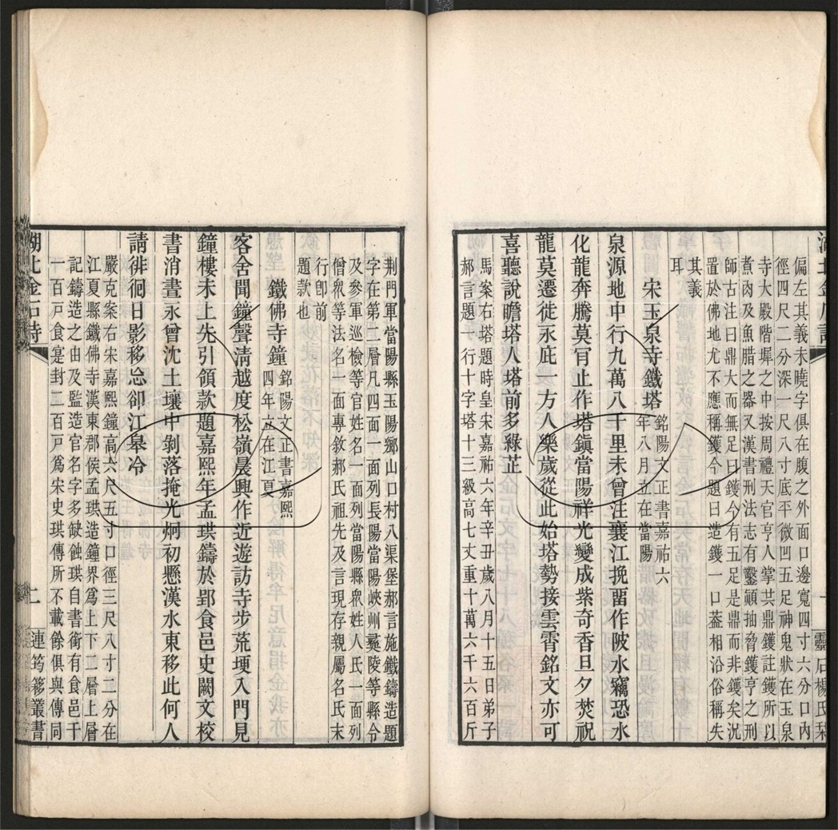 湖北金石詩
一
靈石楊氏栞
偏左其義未曉字俱在腹之外面口邊寬四寸六分口內
徑四尺二分深一尺八寸底平微凹五足神鬼狀在玉泉
寺大殿階墀之中按周禮天官亨人掌共鼎鑊註鑊所以
煮肉及魚腊之器又漢書刑法志有鑿顚抽脅鑊亨之刑
師古注曰鼎大而無足曰鑊今有五足是鼎而非鑊矣況
置於佛地尤不應稱鑊今題曰造鑊一口蓋相沿俗稱失
其義
耳
宋玉泉寺鐵塔
銘陽文正書嘉祐六
年八月立在當陽
泉源地中行九萬八千里未曾注襄江挽畱作陂水竊恐水
化龍奔騰莫肎止作塔鎭當陽祥光變成紫奇香旦夕焚祝
龍莫遷徙永庇一方人樂歲從此始塔勢接雲霄銘文亦可
喜聽說瞻塔人塔前多綠芷
馬案右塔題時皇宋嘉祐六年辛丑歲八月十五日弟子
郝言題一行十字塔十三級高七丈重十萬六千六百斤
荆門軍當陽縣玉陽鄉山口村八渠堡郝言施鐵鑄造題
字在第二層凡四面一面列長陽當陽峽州夷陵等縣令
及參軍巡檢等官姓名一面列當陽縣衆姓人氏一面列
僧衆等法名一面專敘郝氏祖先及言現存親屬名氏末
行卽前
題款也
鐵佛寺鐘
銘陽文正書嘉熙
四年立在江夏
客舍聞鐘聲淸越度松嶺晨興作近遊訪寺步荒埂入門見
鐘樓未上先引領款題嘉熙年孟珙鑄於郢食邑史闕文校
書消晝永曾沈土壤中剝落掩光炯初懸漢水東移此何人
請徘徊日影移忩卻江皋冷
嚴克案右宋嘉熙鐘高六尺五寸口徑三尺八寸二分在
江夏縣鐵佛寺漢東郡侯孟珙造鐘界爲上下二層上層
記鑄造之由及監造官名字多缺蝕珙自書銜有食邑千
一百戸食寔封二百戸爲宋史珙傳所不載餘俱與傳同
湖北金石詩
二
連筠簃叢書